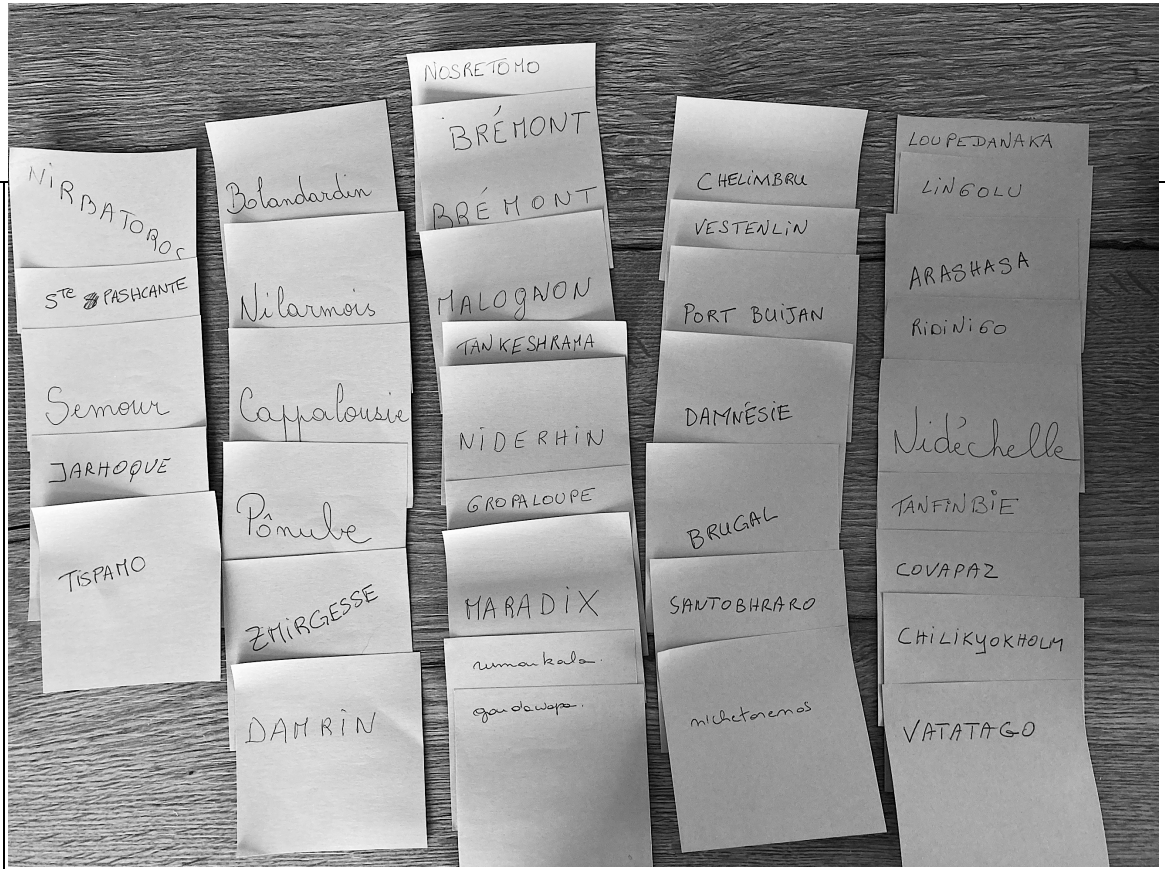 NIRBATOROC
STE PASHCANTE
Semour
JARHOQUE
TISPAMO
Bolandardin
Nilarmois
Cappalousie
Pônube
ZMIRGESSE
DAMRIN
NOSRETOMO
BRÉMONT
BRÉMONT
MALOGNON
TANKESHRAMA
NIDERHIN
GROPALOUPE
MARADIX
rumarkala.
gaudawapa.
CHELIMBRU
VESTENLIN
PORT BUIJAN
DAMNÉSIE
BRUGAL
SANTOBHRARO
nichetoremos
LOUPEDANAKA
LINGOLU
ARASHASA
RIDINIGO
Nidéchelle
TANFINBIE
COVAPAZ
CHILIKYOKHOLM
VATATAGO